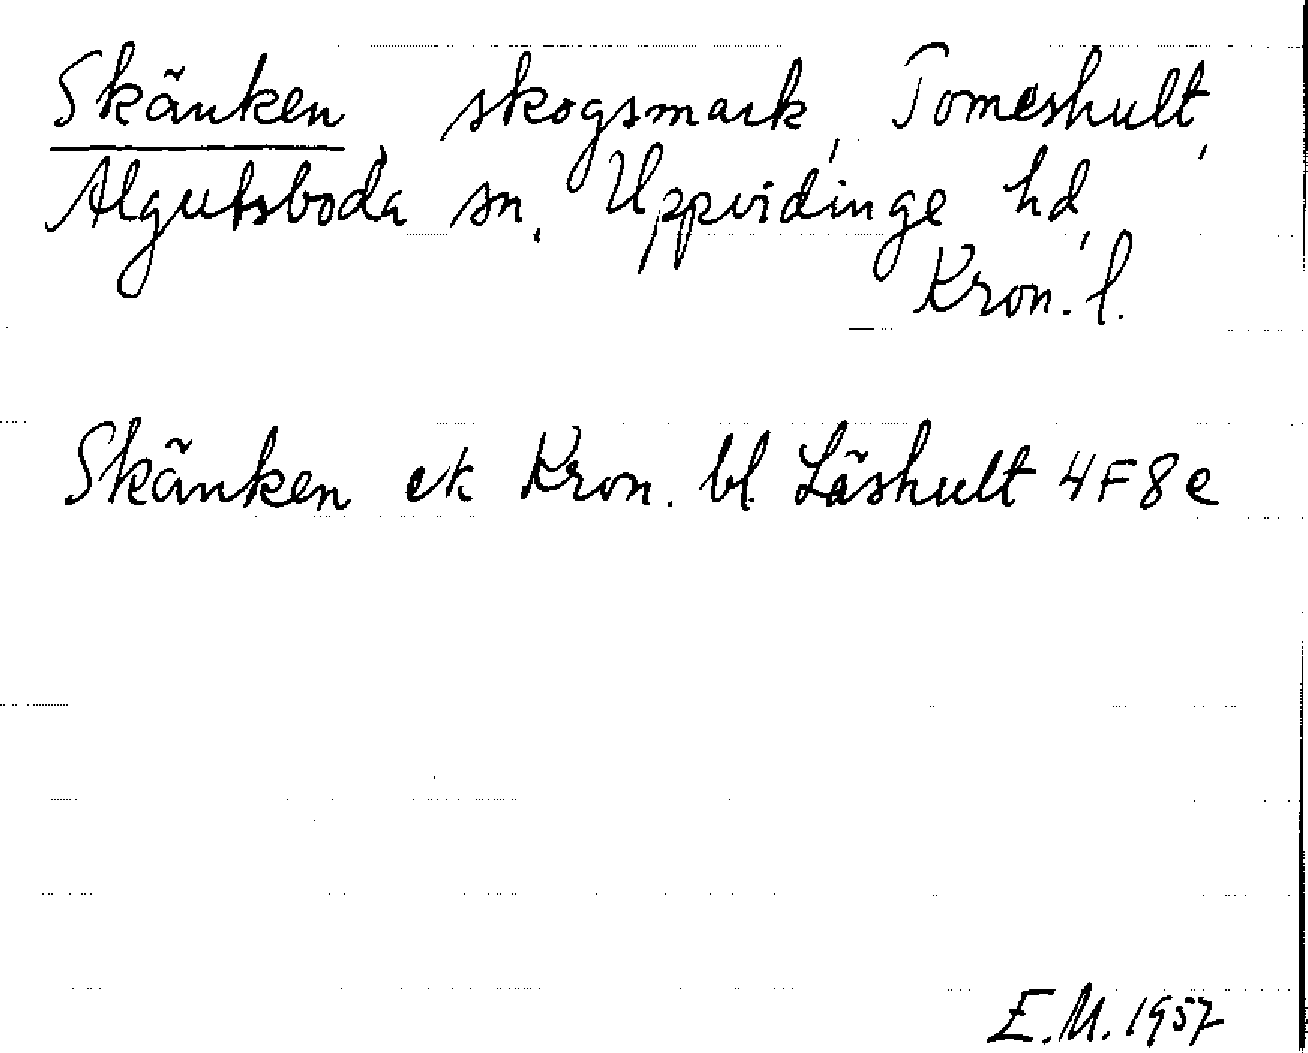 Skänken, skogsmark, Tomeshult,
Algutsboda sn, Uppvidinge hd,
Kron. l.
Skänken ek Kron. bl. Låshult 4F8e
E.M. 1957